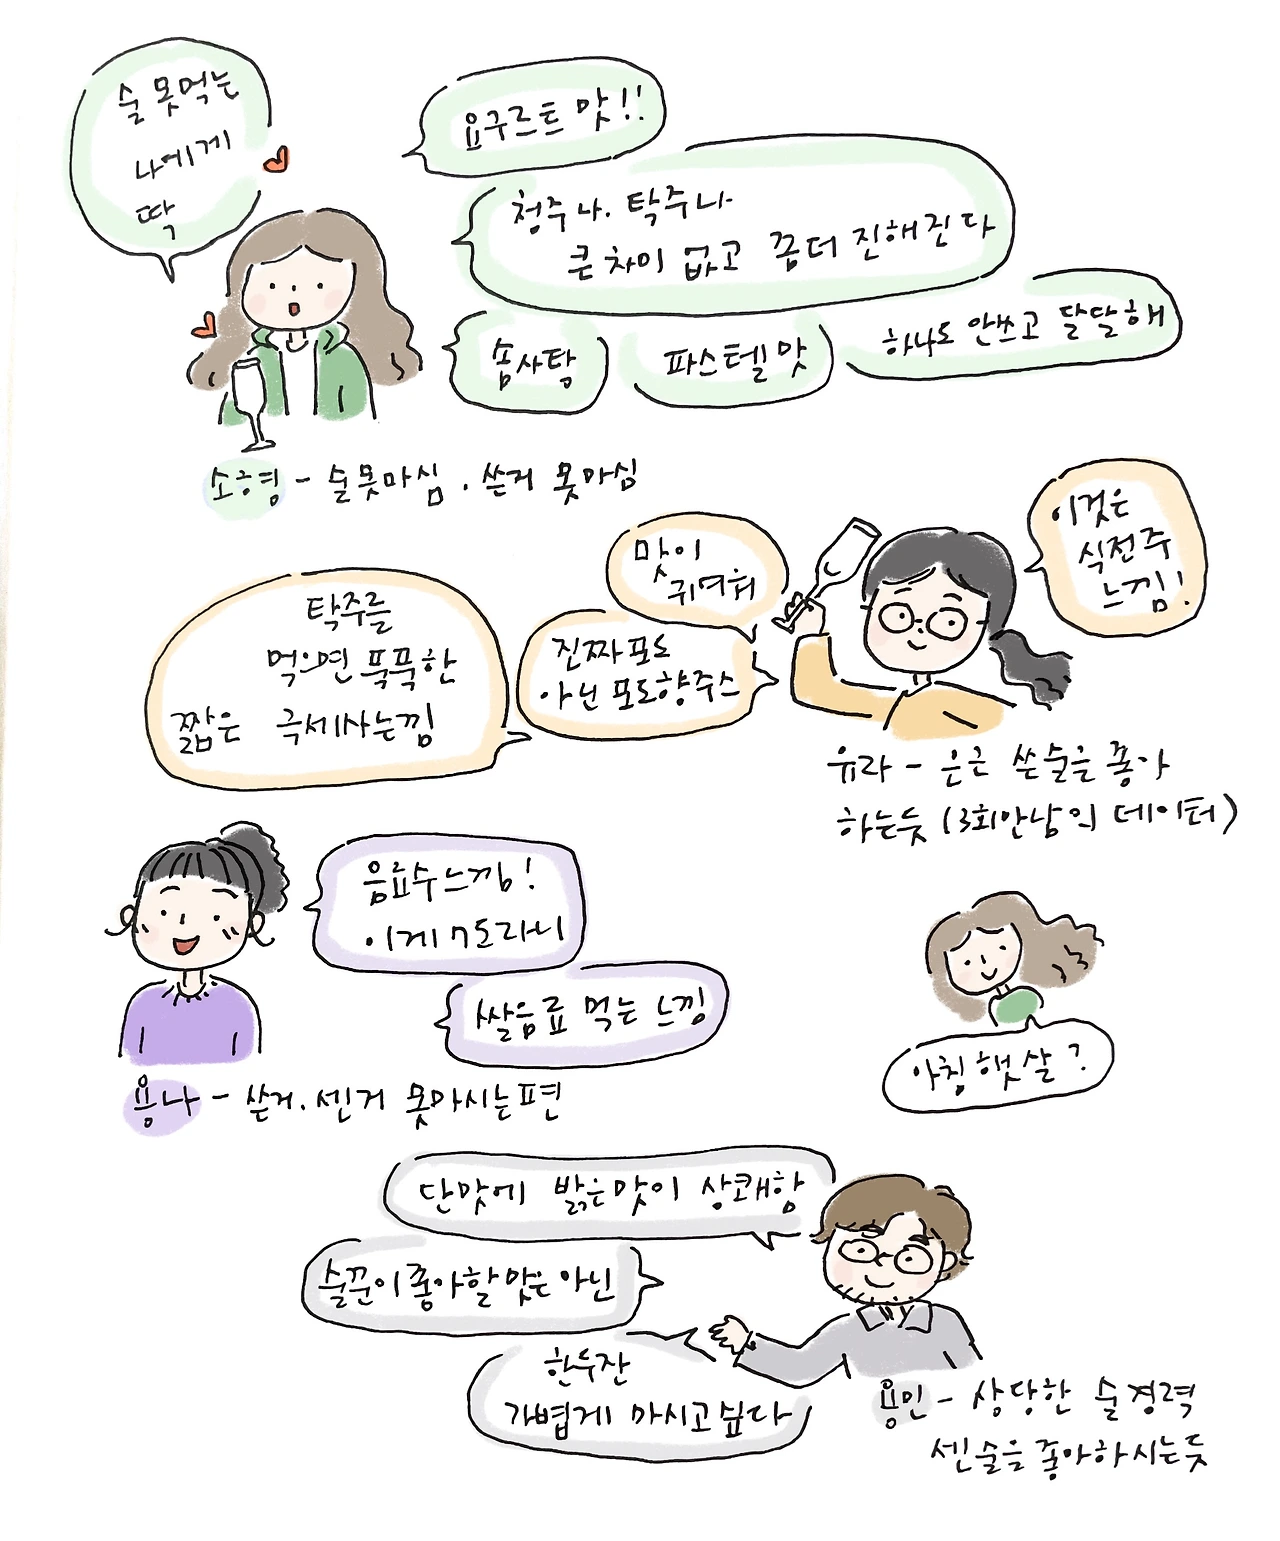 술 못먹는
나에게
딱
요구르트 맛!!
청주나. 탁주나
큰 차이 없고 좀더 진해진다
솜사탕
파스텔 맛
하나도 안쓰고 달달해
소금형 - 술못마심. 쓴거 못마심
이것은
식전주
느낌!
맛이
귀여워
진짜포도
아닌 포도향주스
탁주를
먹으면 푹푹한
짧은 극세사느낌
유라 - 은근 쓴술을 좋아
하는듯 (3회만남의 데이터)
음료수느낌!
이게 7도라니
쌀음료 먹는 느낌
용나 - 쓴거. 센거 못마시는편
아침 햇살?
단맛에 밝은맛이 상쾌함
술꾼이 좋아할맛은 아닌
한두잔
가볍게 마시고싶다
용민 - 상당한 술 경력
센술을 좋아하시는듯